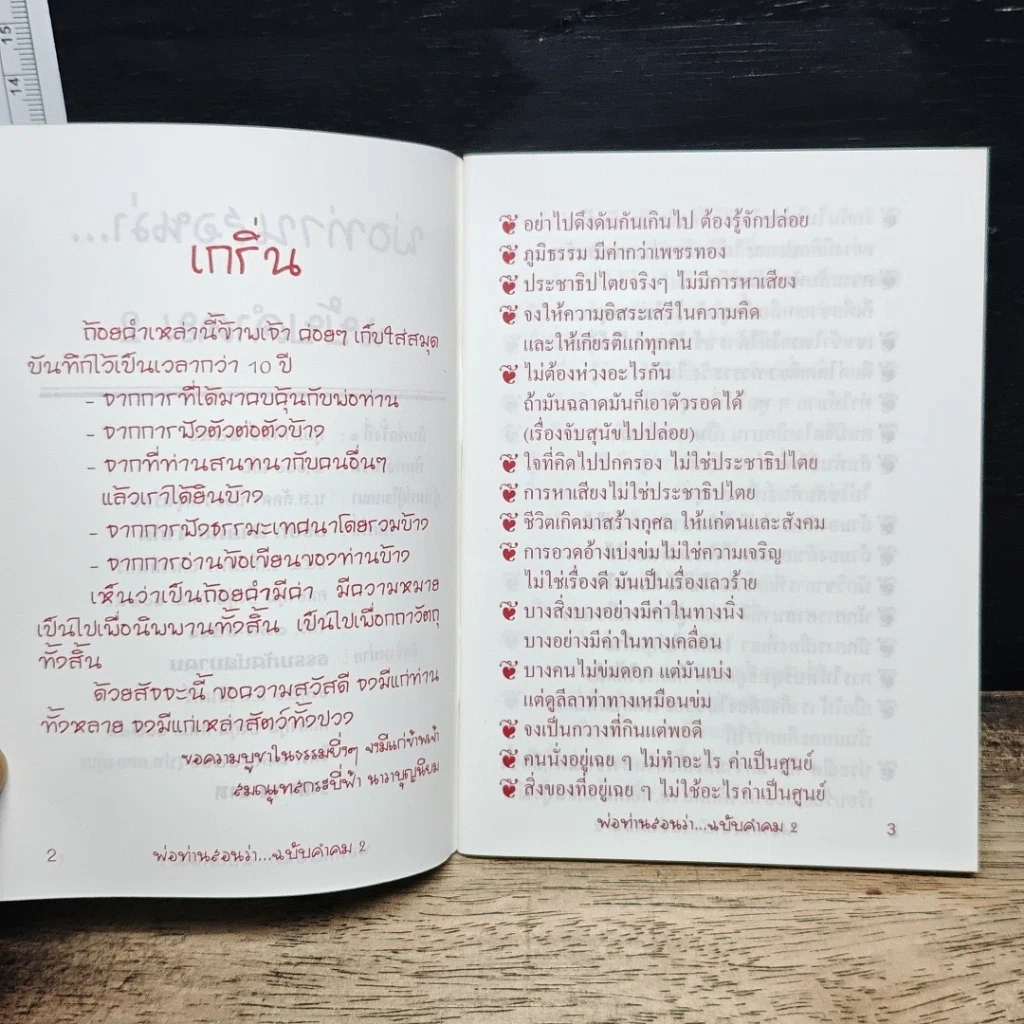 15
14
เกริ่น
ถ้อยคำเหล่านี้ข้าพเจ้า ค่อยๆ เก็บใส่สมุด
บันทึกไว้เป็นเวลากว่า 10 ปี
- จากการที่ได้มาคบคุ้นกับพ่อท่าน
- จากการฟังตัวต่อตัวบ้าง
- จากที่ท่านสนทนากับคนอื่นๆ
แล้วเราได้ยินบ้าง
- จากการฟังธรรมะเทศนาโดยรวมบ้าง
- จากการอ่านข้อเขียนของท่านบ้าง
เห็นว่าเป็นถ้อยคำมีค่า มีความหมาย
เป็นไปเพื่อนิพพานทั้งสิ้น เป็นไปเพื่อกถาวัตถุ
ทั้งสิ้น
ด้วยสัจจะนี้ ขอความสวัสดี จงมีแก่ท่าน
ทั้งหลาย จงมีแก่เหล่าสัตว์ทั้งปวง
ขอความบูชาในธรรมยิ่งๆ จงมีแก่ข้าพเจ้า
สมณุทสกระบี่ฟ้า นาวาบุญนิยม
2 พ่อท่านสอนว่า...ฉบับคำคม 2
อย่าไปดึงดันกันเกินไป ต้องรู้จักปล่อย
ภูมิธรรม มีค่ากว่าเพชรทอง
ประชาธิปไตยจริงๆ ไม่มีการหาเสียง
จงให้ความอิสระเสรีในความคิด
และให้เกียรติแก่ทุกคน
ไม่ต้องห่วงอะไรกัน
ถ้ามันฉลาดมันก็เอาตัวรอดได้
(เรื่องจับสุนัขไปปล่อย)
ใจที่คิดไปปกครอง ไม่ใช่ประชาธิปไตย
การหาเสียงไม่ใช่ประชาธิปไตย
ชีวิตเกิดมาสร้างกุศล ให้แก่ตนและสังคม
การอวดอ้างเบ่งข่มไม่ใช่ความเจริญ
ไม่ใช่เรื่องดี มันเป็นเรื่องเลวร้าย
บางสิ่งบางอย่างมีค่าในทางนิ่ง
บางอย่างมีค่าในทางเคลื่อน
บางคนไม่ข่มดอก แต่มันเบ่ง
แต่ดูลีลาท่าทางเหมือนข่ม
จงเป็นกวางที่กินแต่พอดี
คนนั่งอยู่เฉย ๆ ไม่ทำอะไร ค่าเป็นศูนย์
สิ่งของที่อยู่เฉย ๆ ไม่ใช้อะไรค่าเป็นศูนย์
พ่อท่านสอนว่า...ฉบับคำคม 2 3